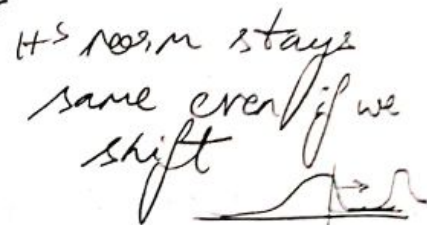 H^s norm stays
same even if we
shift